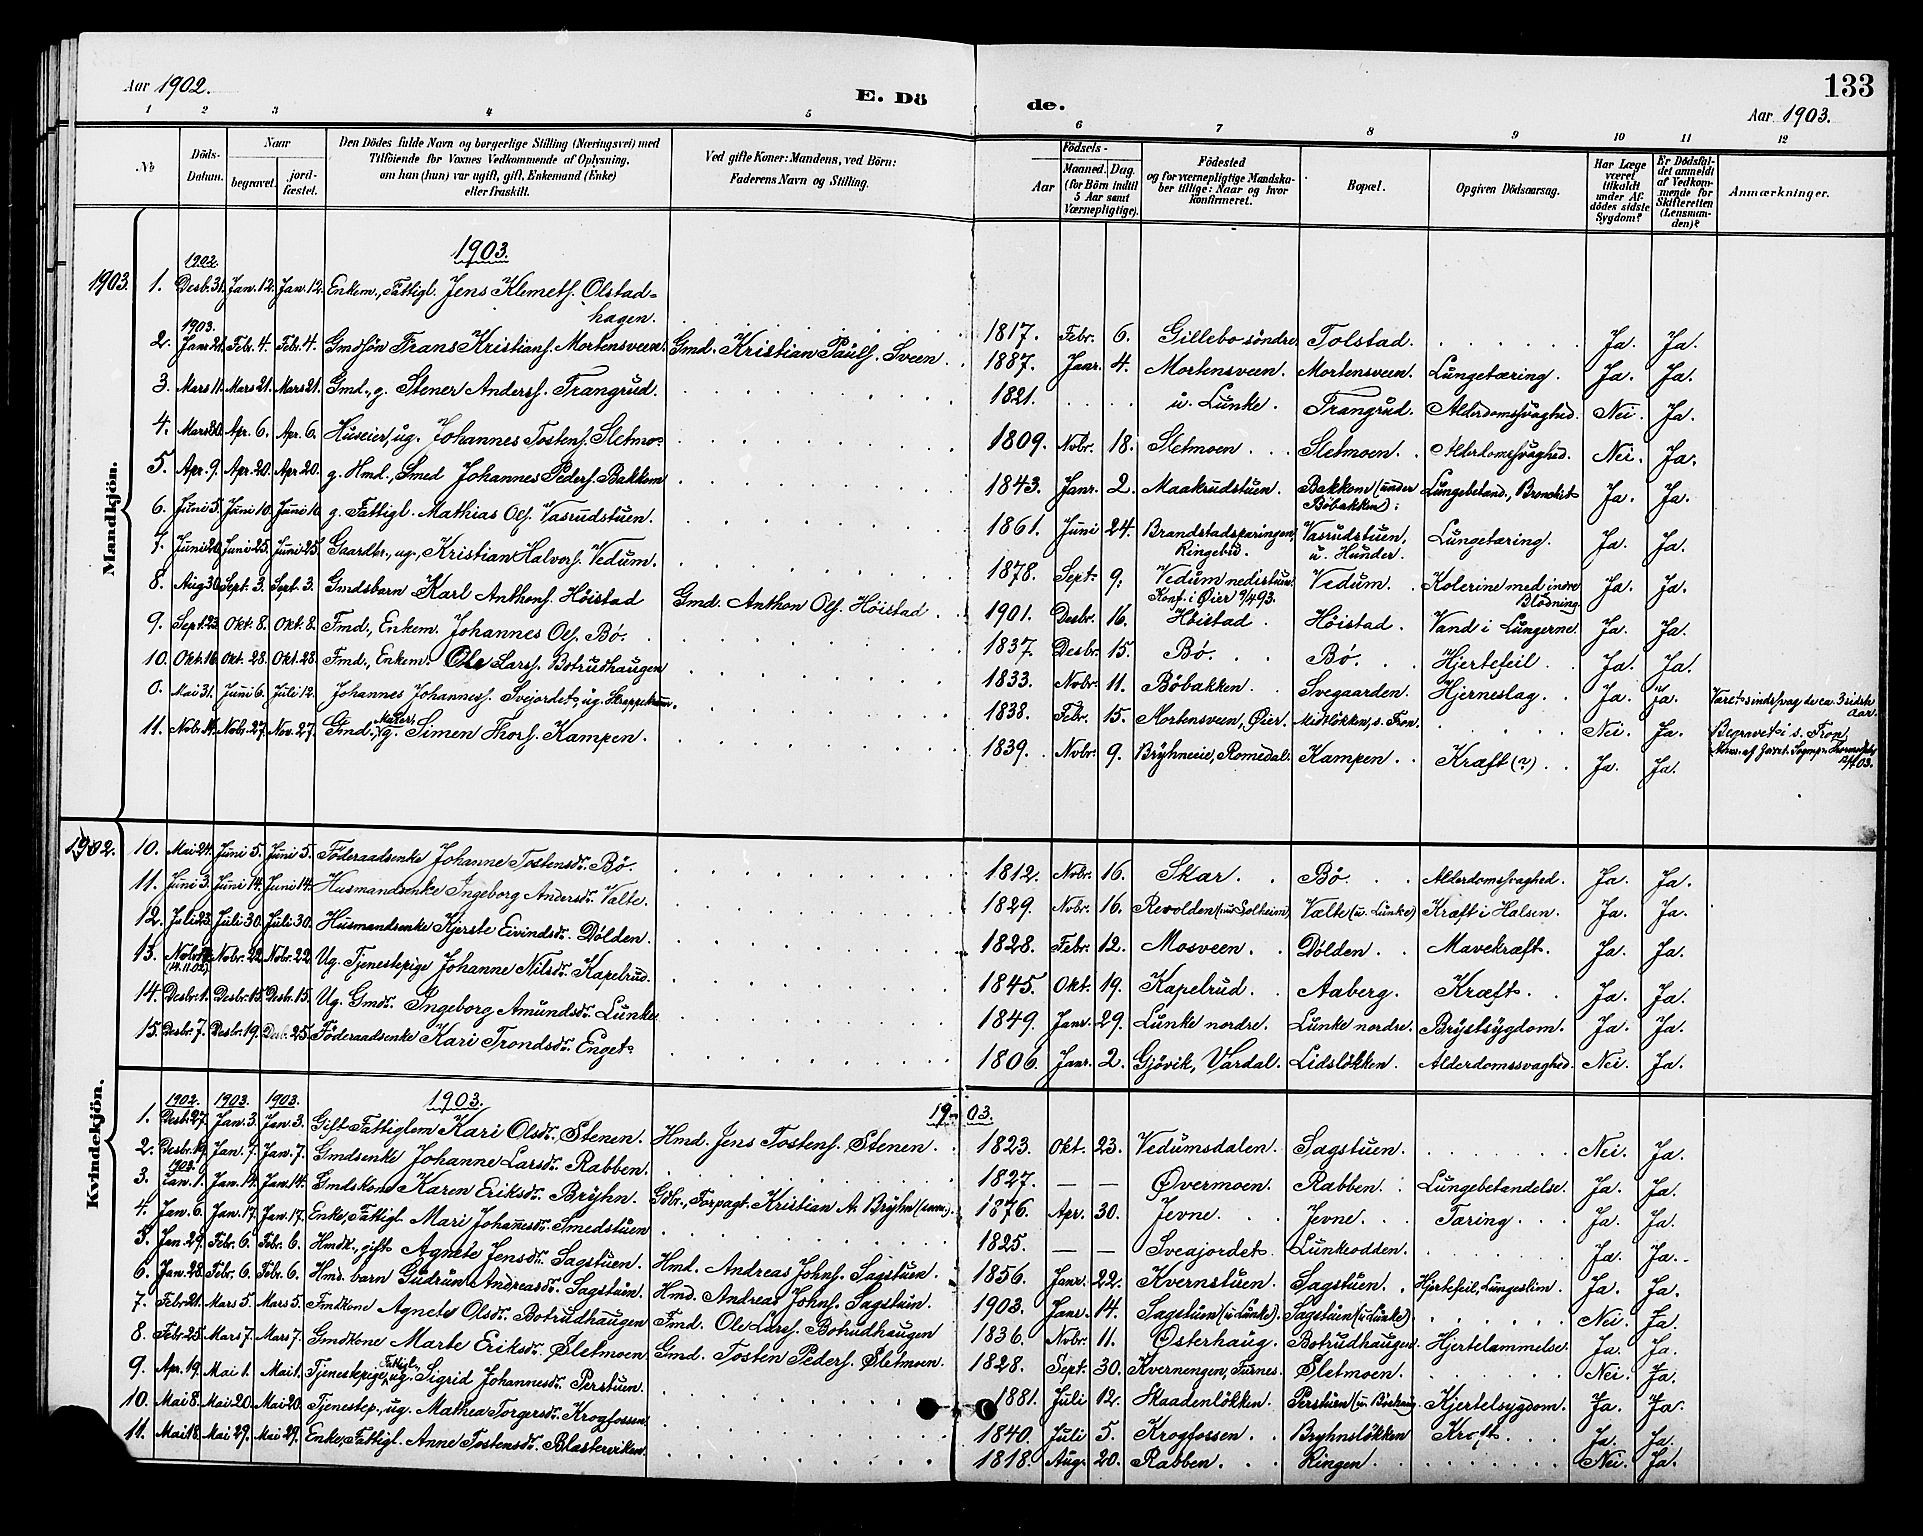 Aar 1902.
E. Dö
de.
133
Aar 1903.
1 2 3 4 5 6 7 8 9 10 11 12
No
Döds-Datum.
Naar
begravet.
jord-fæstet.
Den Dödes fulde Navn og borgerlige Stilling (Næringsvei) med
Tilföiende for Voxnes Vedkommende af Oplysning,
om han (hun) var ugift, gift, Enkemand (Enke)
eller fraskilt.
Ved gifte Koner: Mandens, ved Börn:
Faderens Navn og Stilling.
Födsels-
Aar
Maaned. Dag.
(for Börn indtil
5 Aar samt
Værnepligtige).
Födested
og for værnepligtige Mandska-
ber tillige: Naar og hvor
konfirmeret.
Bopæl.
Opgiven Dödsaarsag.
Har Læge
været
tilkaldt
under Af-
dödes sidste
Sygdom?
Er Dödsfal-
det anmeldt
af Vedkom-
mende for
Skifteretten
(Lensman-
den)?
Anmærkninger.
Mandkjön.
1903.
1903.
1902.
1. Desb. 31. Jan. 12. Jan. 12. Enkem., Fattigl. Jens Klemets. Olstad-
hagen. 1817. Febr. 6. Gillebo söndre Tolstad. Ja. Ja.
1903.
2. Janr. 21. Febr. 4. Febr. 4. Gmdsön Frans Kristians. Mortensveen. Gmd. Kristian Pauls. Sveen. 1887. Janr. 4. Mortensveen. Mortensveen. Lungetæring. Ja. Ja.
3. Mars 11. Mars 21. Mars 21. Gmd., g. Stener Anders. Trangrud. 1821. u. Lunke. Trangrud. Alderdomssvaghed. Nei. Ja.
4. Mars 28. Apr. 6. Apr. 6. Huseier, ug. Johannes Tostens. Sletmo. 1809. Novbr. 18. Sletmoen. Sletmoen. Alderdomssvaghed. Nei. Ja.
5. Apr. 9. Apr. 20. Apr. 20. g. Hmd., Smed Johannes Peders. Bakken 1843. Janr. 2. Maakrudstuen. Bakken (under
Böbakken). Lungebetænd., Bronchit Ja. Ja.
6. Juni 3. Juni 10. Juni 10. g. Fattigl. Mathias Ols. Vasrudstuen. 1861. Juni 24. Brandstadspæringen
Ringebu. Vasrudstuen,
u. Hunder. Lungetæring. Ja. Ja.
7. Juni 20. Juni 25. Juni 25. Gaardbr., ug., Kristian Halvors. Vedum. 1878. Sept. 9. Vedum nedistuen.
Konf. i Øier 9/4 93. Vedum. Kolerine med indre
Blödning. Ja. Ja.
8. Aug. 30. Sept. 3. Sept. 3. Gmdsbarn Karl Anthons. Höistad Gmd. Anthon Ols. Höistad. 1901. Desbr. 16. Höistad. Höistad. Vand i Lungerne. Ja. Ja.
9. Sept. 23. Okt. 8. Okt. 8. Fmd., Enkem. Johannes Ols. Bö. 1837. Desbr. 15. Bö. Bö. Hjertefeil. Ja. Ja.
10. Okt. 16. Okt. 28. Okt. 28. Fmd., Enkem. Ole Larss. Botrudhaugen 1833. Novbr. 11. Böbakken. Svegaarden. Hjerneslag. Ja. Ja.
0. Mai 31. Juni 6. Juli 12. Johannes Johanness. Svejordet, ug. 1838. Febr. 15. Mortensveen, Øier. Midtlökken, s. Fron. Nei. Ja. Været sindssvag de ca. 3 sidste
Aar. Begravet i s. Fron
11. Nobr. 14. Nobr. 27. Nov. 27. Gmd., g. Simen Thors. Kampen. 1839. Nobr. 9. Bryhneeie, Romedal. Kampen. Kræft (?) Ja. Ja.
1902.
10. Mai 24. Juni 5. Juni 5. Föderaadsenke Johanne Tostensdr. Bö. 1812. Nobr. 16. Skar. Bö. Alderdomssvaghed. Ja. Ja.
11. Juni 3. Juni 14. Juni 14. Husmandsenke Ingeborg Andersdr. Valte. 1829. Nobr. 16. Revolden (u. Solheim) Vælte (u. Lunke) Kræft i Halsen. Ja. Ja.
12. Juli 23. Juli 30. Juli 30. Husmandsenke Kjerste Eivindsdr. Dölden. 1828. Febr. 12. Mosveen. Dölden. Mavekræft. Ja. Ja.
13. Nobr. 14
(14.11.02) Nobr. 22. Nobr. 22. Ug. Tjenestepige Johanne Nilsdr. Kapelrud. 1845. Okt. 19. Kapelrud. Aaberg. Kræft. Ja. Ja.
14. Desbr. 1. Desbr. 15. Desbr. 15. Ug. Gmdr. Ingeborg Amundsdr. Lunke. 1849. Janr. 29. Lunke nordre. Lunke nordre. Brystsygdom. Ja. Ja.
15. Desbr. 7. Desbr. 19. Desb. 25. Föderaadsenke Kari Trondsdr. Enget. 1806. Janr. 2. Gjövik, Vardal. Lidslökken. Alderdomssvaghed. Nei. Ja.
Kvindekjön.
1902. 1903. 1903. 1903. 1903.
1. Desb. 27. Jan. 3. Jan. 3. Gift Fattiglem Kari Olsdr. Stenen. Hmd. Jens Tostens. Stenen. 1823. Okt. 23. Vedumsdalen. Sagstuen. Nei. Ja.
2. Desbr. 19. Jan. 7. Jan. 7. Gmdsenke Johanne Larsdr. Rabben. 1827. — — Øvermoen. Rabben. Lungebetændelse. Ja. Ja.
1903.
3. Jan. 1. Jan. 14. Jan. 14. Gmdskone Karen Eriksdr. Bryhn. Gdbr., Forpagt. Kristian A. Bryhn 1876. Apr. 30. Jevne. Jevne. Tæring. Ja. Ja.
4. Jan. 6. Jan. 17. Jan. 17. Enke, Fattigl. Mari Johannesdr. Smedstuen. 1825. — — Sveajordet. Lunkeodden. Ja. Ja.
5. Jan. 29. Febr. 6. Febr. 6. Hmdk., gift Agnete Jensdr. Sagstuen. Hmd. Andreas Johns. Sagstuen. 1856. Janr. 22. Kvernstuen. Sagstuen. Hjertefeil, Lungeslim. Ja. Ja.
6. Jan. 28. Febr. 6. Febr. 6. Hmd. barn Gudrun Andreasdr. Sagstuen. Hmd. Andreas Johns. Sagstuen. 1903. Janr. 14. Sagstuen (u. Lunke). Sagstuen (u. Lunke). Nei. Ja.
7. Febr. 21. Mars 5. Mars 5. Fmdkone Agnete Olsdr. Botrudhaugen Fmd. Ole Larss. Botrudhaugen 1836. Nobr. 11. Østerhaug. Botrudhaugen. Hjertelammelse. Ja. Ja.
8. Febr. 25. Mars 7. Mars 7. Gmdkone Marte Eriksdr. Sletmoen. Gmd. Tosten Peders. Sletmoen. 1828. Sept. 30. Kvernengen, Furnes. Sletmoen. Nei. Ja.
9. Apr. 19. Mai 1. Mai 1. Tjenestepige, Fattigl., ug. Sigrid Johannesdr. Perstuen. 1881. Juli 12. Skaadenlökken. Perstuen Kjertelsygdom. Ja. Ja.
10. Mai 8. Mai 20. Mai 20. Tjenestep., ug. Mathea Torgersdr. Krogfossen. 1840. Juli 5. Krogfossen. Bryhnslökken Kræft. Ja. Ja.
11. Mai 18. Mai 29. Mai 29. Enke, Fattigl. Anne Tostensdr. Blasterviken. 1818. Aug. 20. Rabben. Ringen. Nei. Ja.